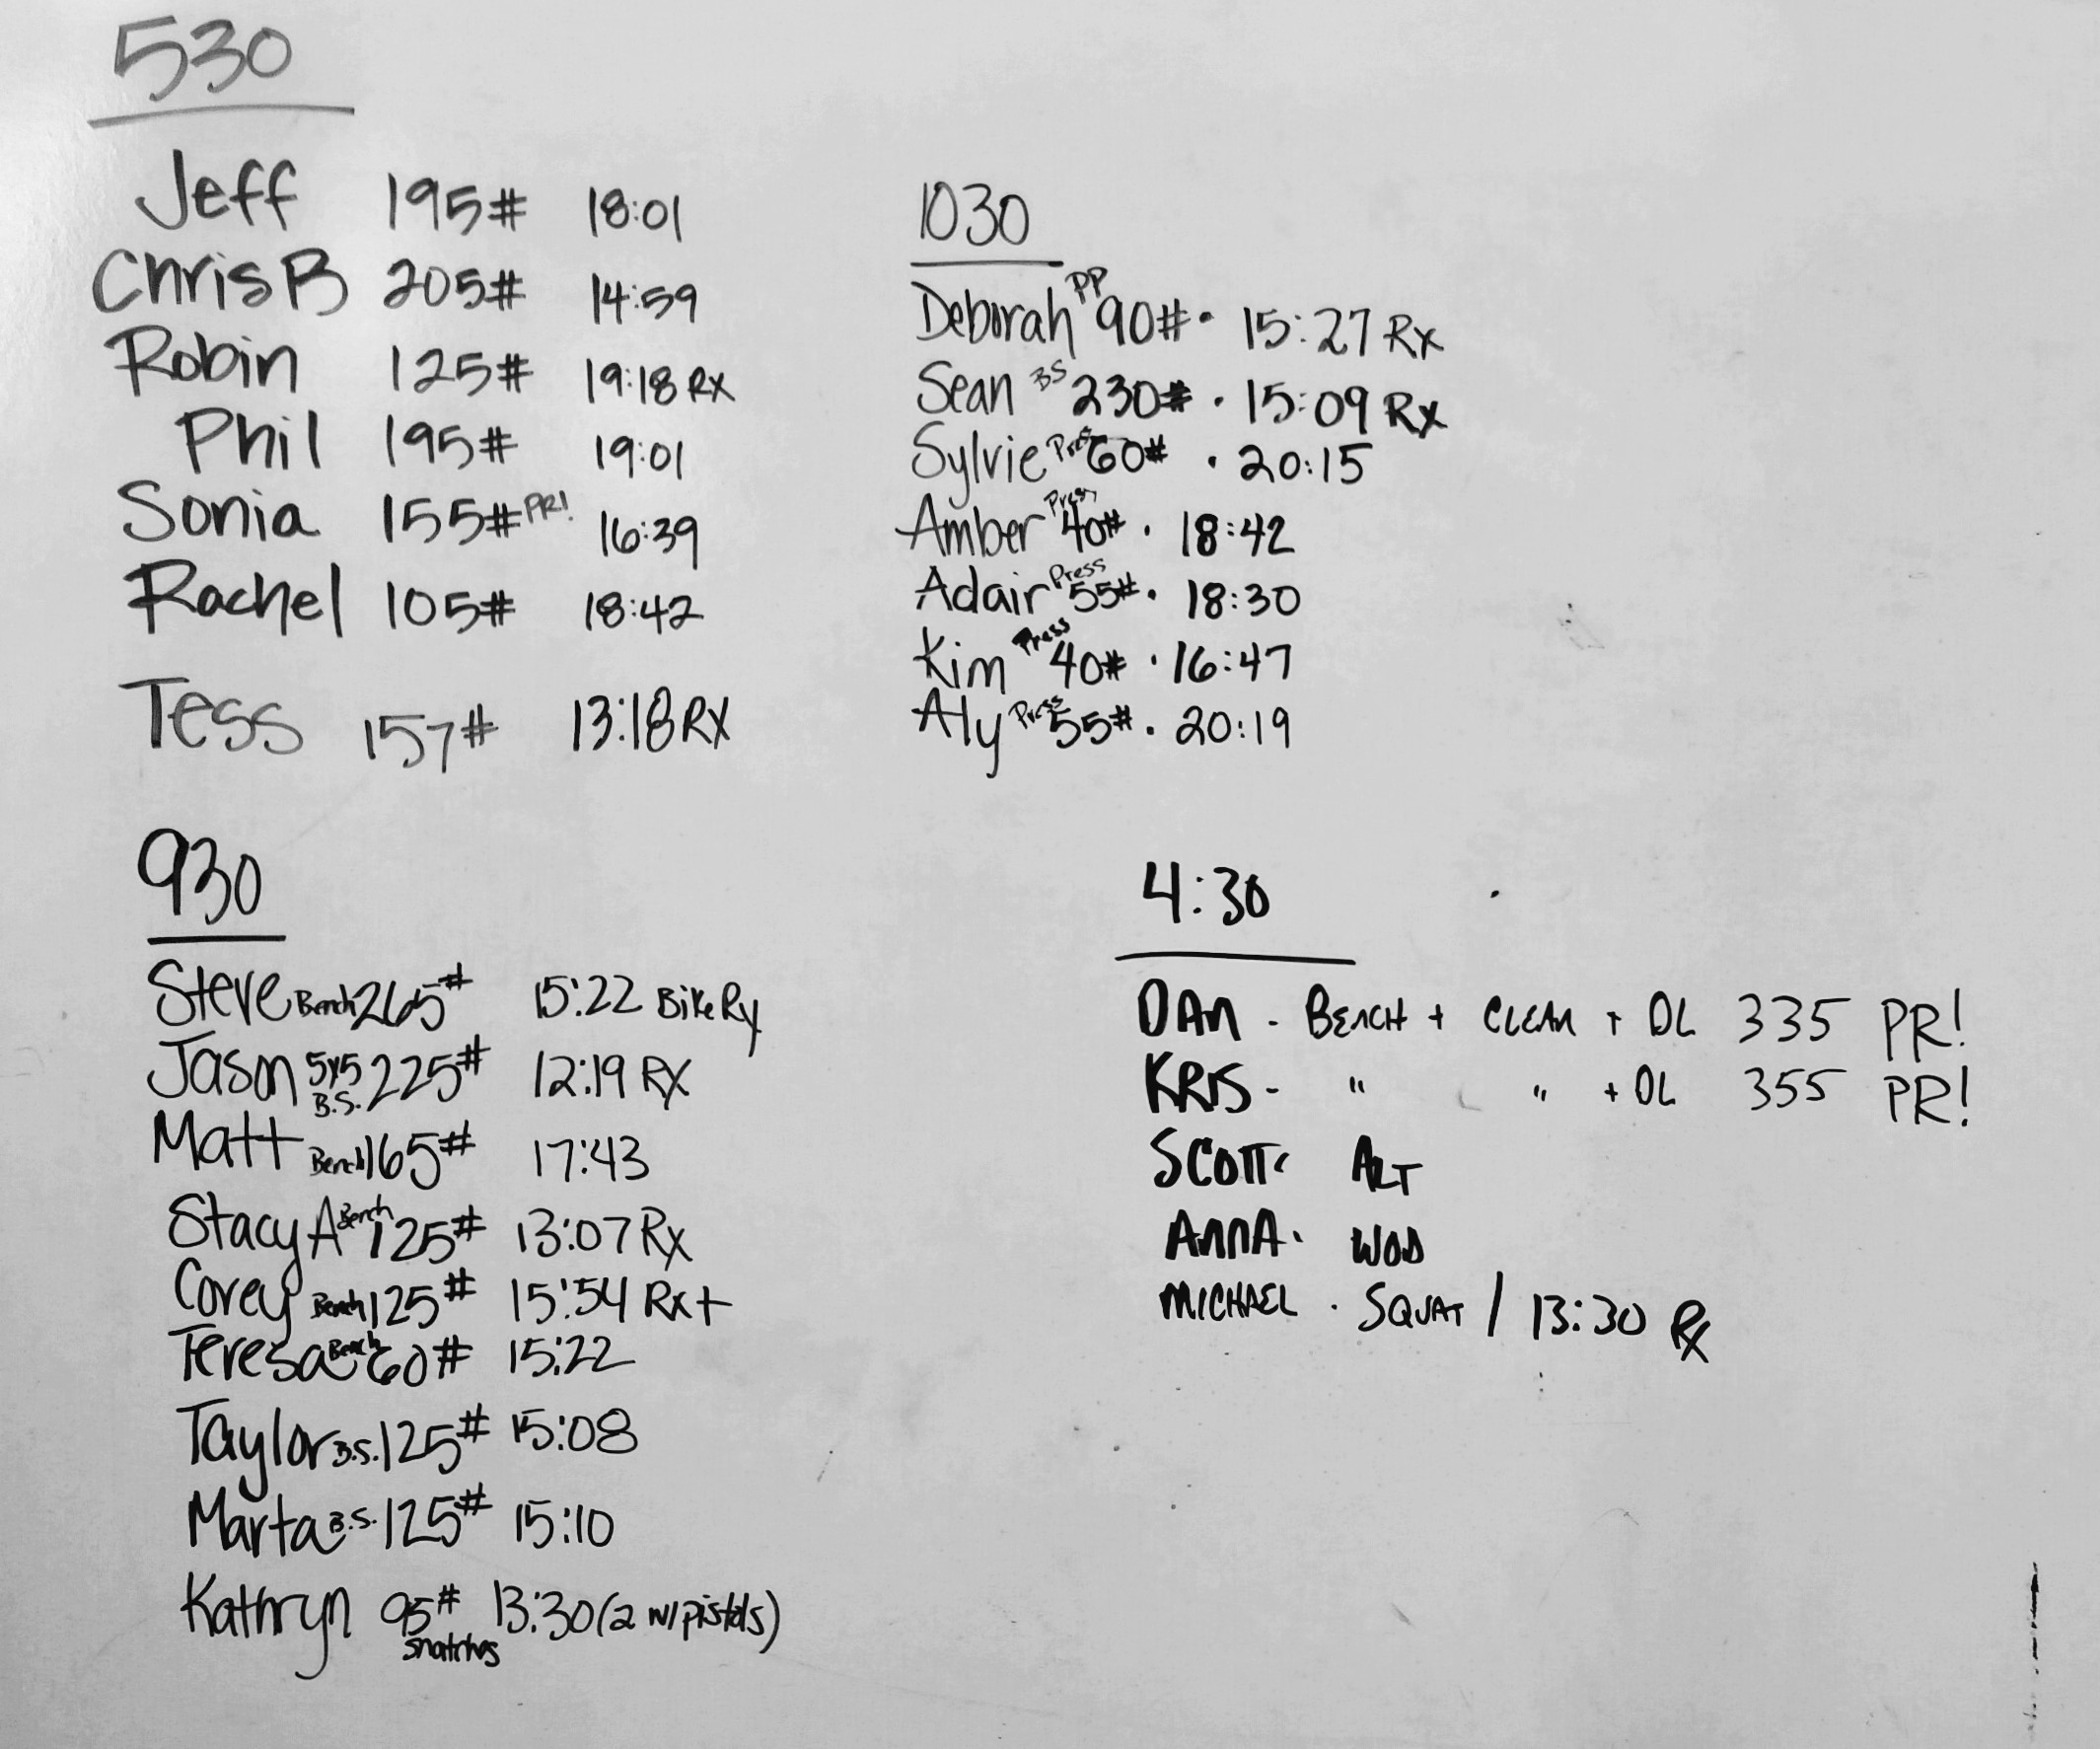 530
Jeff 195# 18:01
Chris B 205# 14:59
Robin 125# 19:18 RX
Phil 195# 19:01
Sonia 155# PR! 16:39
Rachel 105# 18:42
Tess 157# 13:18 RX
1030
Deborah PP 90# • 15:27 Rx
Sean BS 230# • 15:09 Rx
Sylvie Press 60# • 20:15
Amber Press 40# • 18:42
Adair Press 55# • 18:30
Kim Press 40# • 16:47
Aly Press 55# • 20:19
930
Steve Bench 265# 15:22 Bike Rx
Jason 5x5 B.S. 225# 12:19 RX
Matt Bench 165# 17:43
Stacy A Bench 125# 13:07 Rx
Corey Bench 125# 15:54 Rx+
Teresa Bench 60# 15:22
Taylor B.S. 125# 15:08
Marta B.S. 125# 15:10
Kathryn 95# 13:30 (2 w/ pistols)
snatches
4:30
DAN - BENCH + CLEAN + DL 335 PR!
KRIS - " " + DL 355 PR!
SCOTT - ALT
ANNA - WOD
MICHAEL - SQUAT / 13:30 Rx